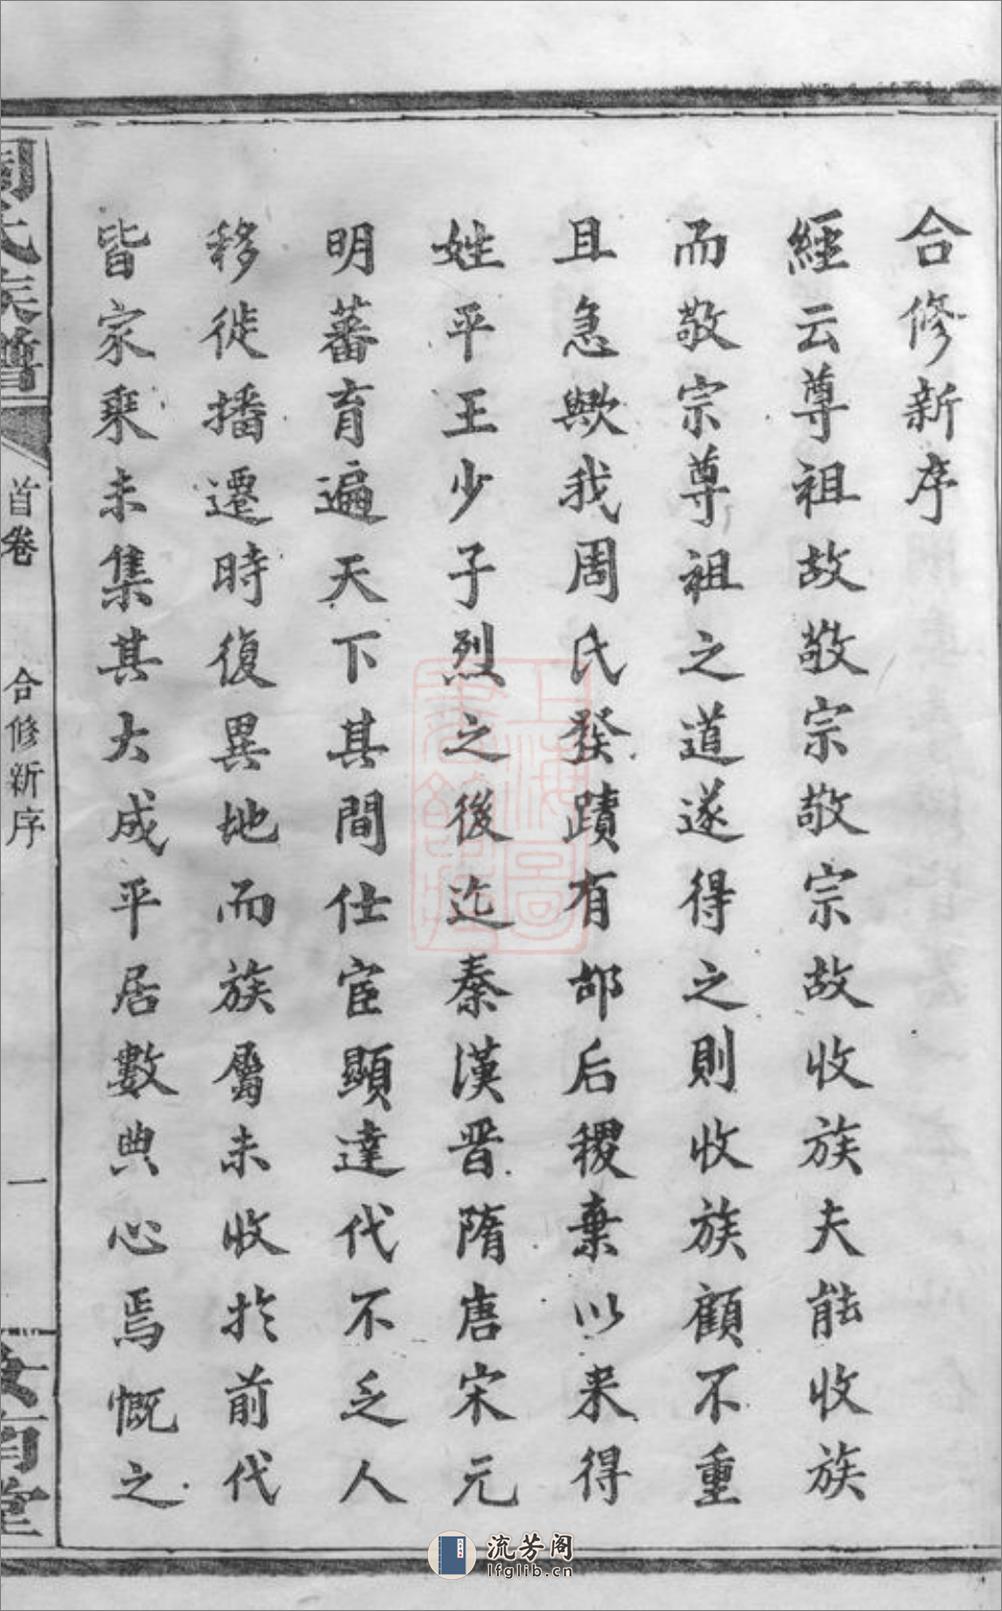 合修新序
經云尊祖故敬宗敬宗故收族夫能收族
而敬宗尊祖之道遂得之則收族顧不重
且急歟我周氏發蹟有邰后稷棄以来得
姓平王少子烈之後迄秦漢晋隋唐宋元
明蕃育遍天下其間仕宦顯達代不乏人
移徙播遷時復異地而族屬未收扵前代
皆家乘未集其大成平居數典心焉慨之
周氏族譜
首卷
合修新序
一
汝南堂
上海圖書館藏
流芳阁
lfglib.cn